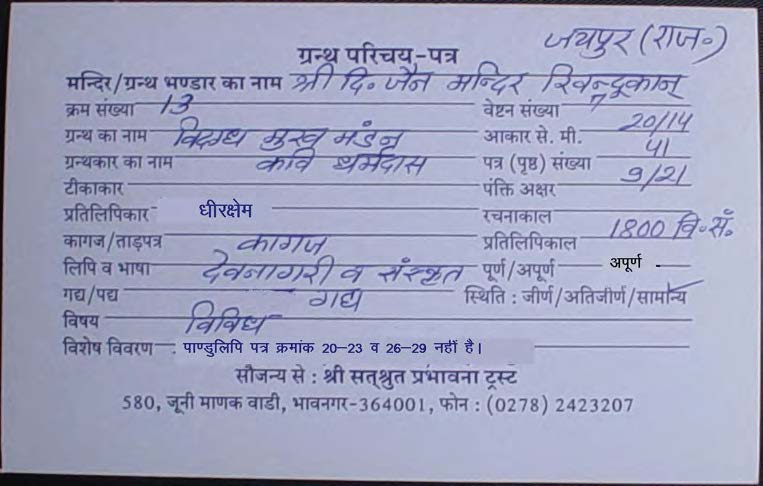 जयपुर (राज॰)
ग्रन्थ परिचय-पत्र
मन्दिर/ग्रन्थ भण्डार का नाम श्री दि॰ जैन मन्दिर
क्रम संख्या 13 वेष्टन संख्या 7
ग्रन्थ का नाम विदग्ध मुख मंडन आकार से. मी. 20/14
ग्रन्थकार का नाम कवि धर्मदास पत्र (पृष्ठ) संख्या 41
टीकाकार पंक्ति अक्षर 9/21
प्रतिलिपिकार धीरक्षेम रचनाकाल
कागज/ताड़पत्र कागज प्रतिलिपिकाल 1800 वि॰सं॰
लिपि व भाषा देवनागरी व संस्कृत पूर्ण/अपूर्ण अपूर्ण -
गद्य/पद्य गद्य स्थिति : जीर्ण/अतिजीर्ण/सामान्य
विषय विविध
विशेष विवरण - पाण्डुलिपि पत्र क्रमांक 20-23 व 26-29 नहीं है।
सौजन्य से : श्री सत्श्रुत प्रभावना ट्रस्ट
580, जूनी माणक वाडी, भावनगर-364001, फोन : (0278) 2423207